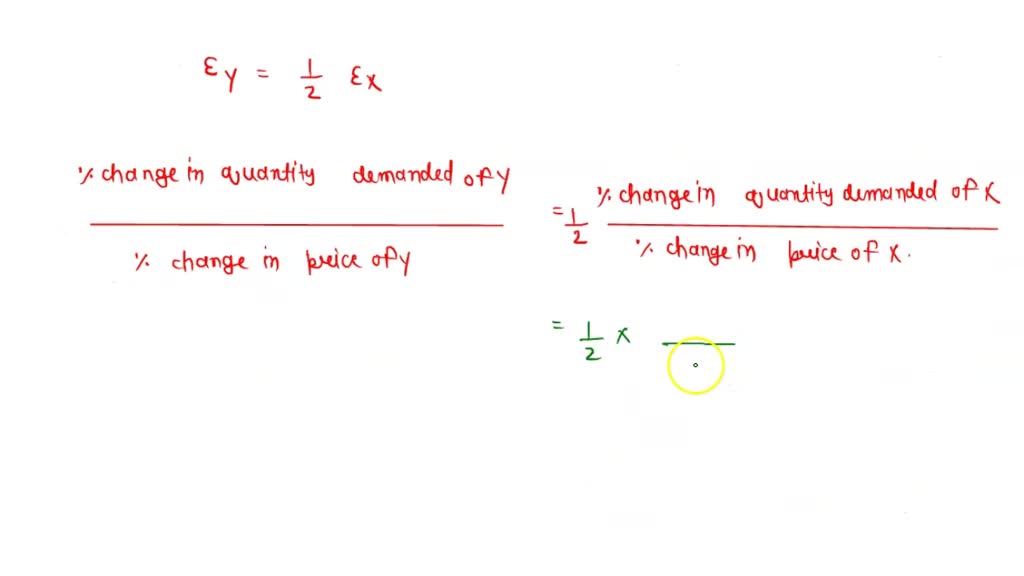 εy = 1/2 εx
% change in quantity demanded of y
% change in price of y
= 1/2 % change in quantity demanded of x
% change in price of x.
= 1/2 x